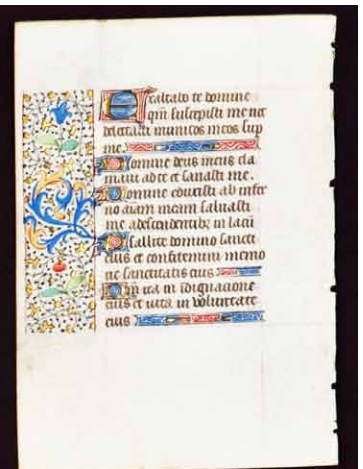 Exaltabo te domine
qm̄ suscepisti me nec
delectasti inimicos meos sup
me.
Domine deus meus cla
maui ad te et sanasti me.
Domine eduxisti ab infer
no aīam meam saluasti
me a descendentibz in lacū
Psallite domino sancti
eius et confitemini memo
rie sanctitatis eius
Qm̄ ira in īdignacione
eius et uita in voluntate
eius